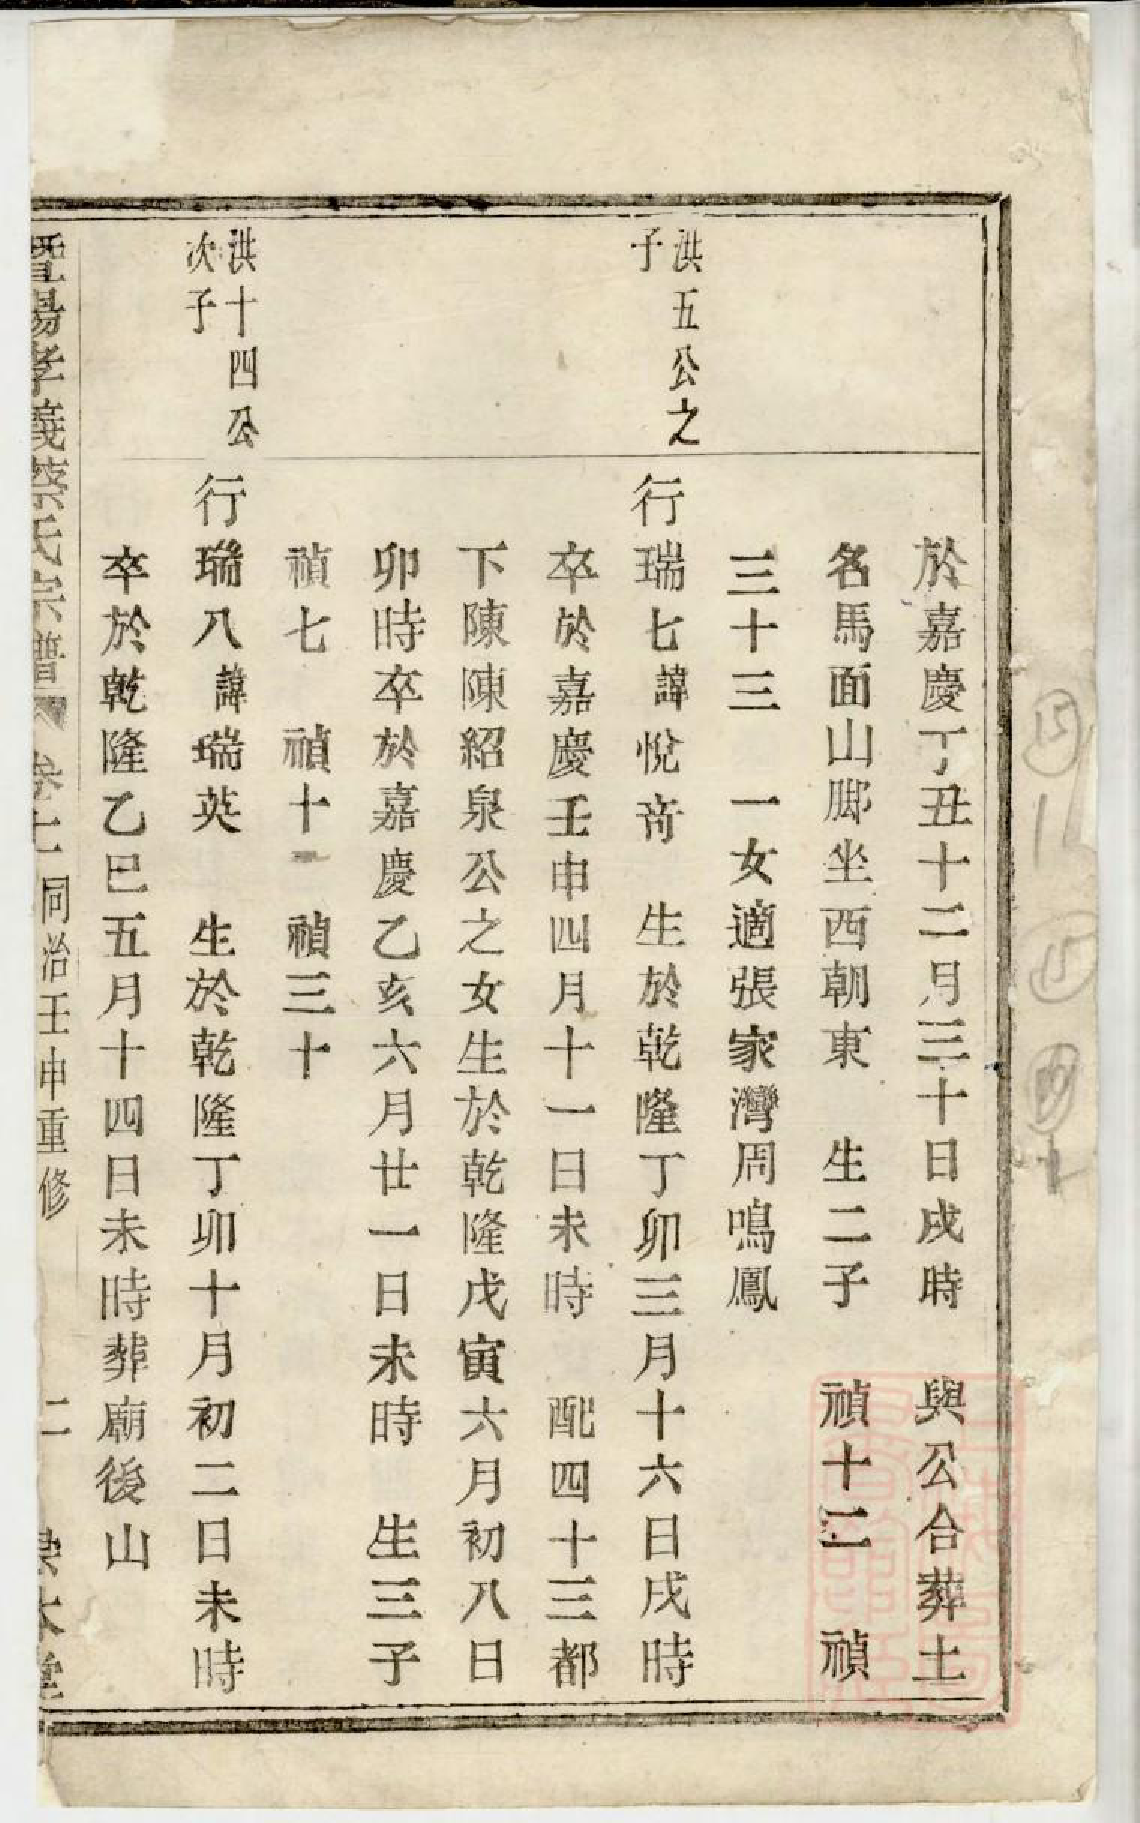 於嘉慶丁丑十二月三十日戌時　與公合葬土
名馬面山脚坐西朝東　生二子　禎十二　禎
三十三　一女適張家灣周鳴鳳
洪五公之
子
行瑞七諱悅奇　生於乾隆丁卯三月十六日戌時
卒於嘉慶壬申四月十一日未時　配四十三都
下陳陳紹泉公之女生於乾隆戊寅六月初八日
卯時卒於嘉慶乙亥六月廿一日未時　生三子
禎七　禎十二　禎三十
洪十四公
次子
行瑞八諱瑞英　生於乾隆丁卯十月初二日未時
卒於乾隆乙巳五月十四日未時葬廟後山
暨陽孝義蔡氏宗譜　卷　同治壬申重修　二　崇本堂
15
15